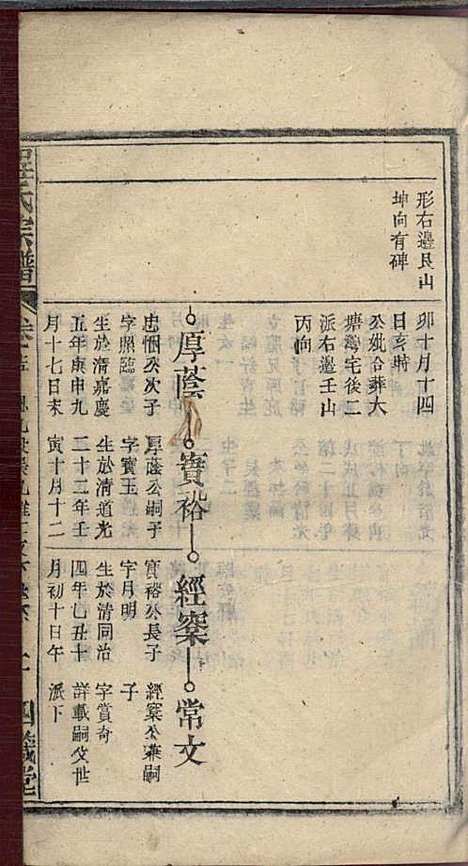 形右邊艮山
坤向有碑
卯十月十四
日亥時
公妣合葬大
塘灣宅後二
派右邊壬山
丙向
厚蔭
寶裕
經寀
常文
忠悃公次子
字照臨
生於清嘉慶
五年庚申九
月十七日未
厚蔭公嗣子
字寶玉
生於清道光
二十二年壬
寅十月十二
寶裕公長子
字月明
生於清同治
四年乙丑十
月初十日午
經寀公兼嗣
子
字賞奇
詳載嗣父世
派下
程氏宗譜